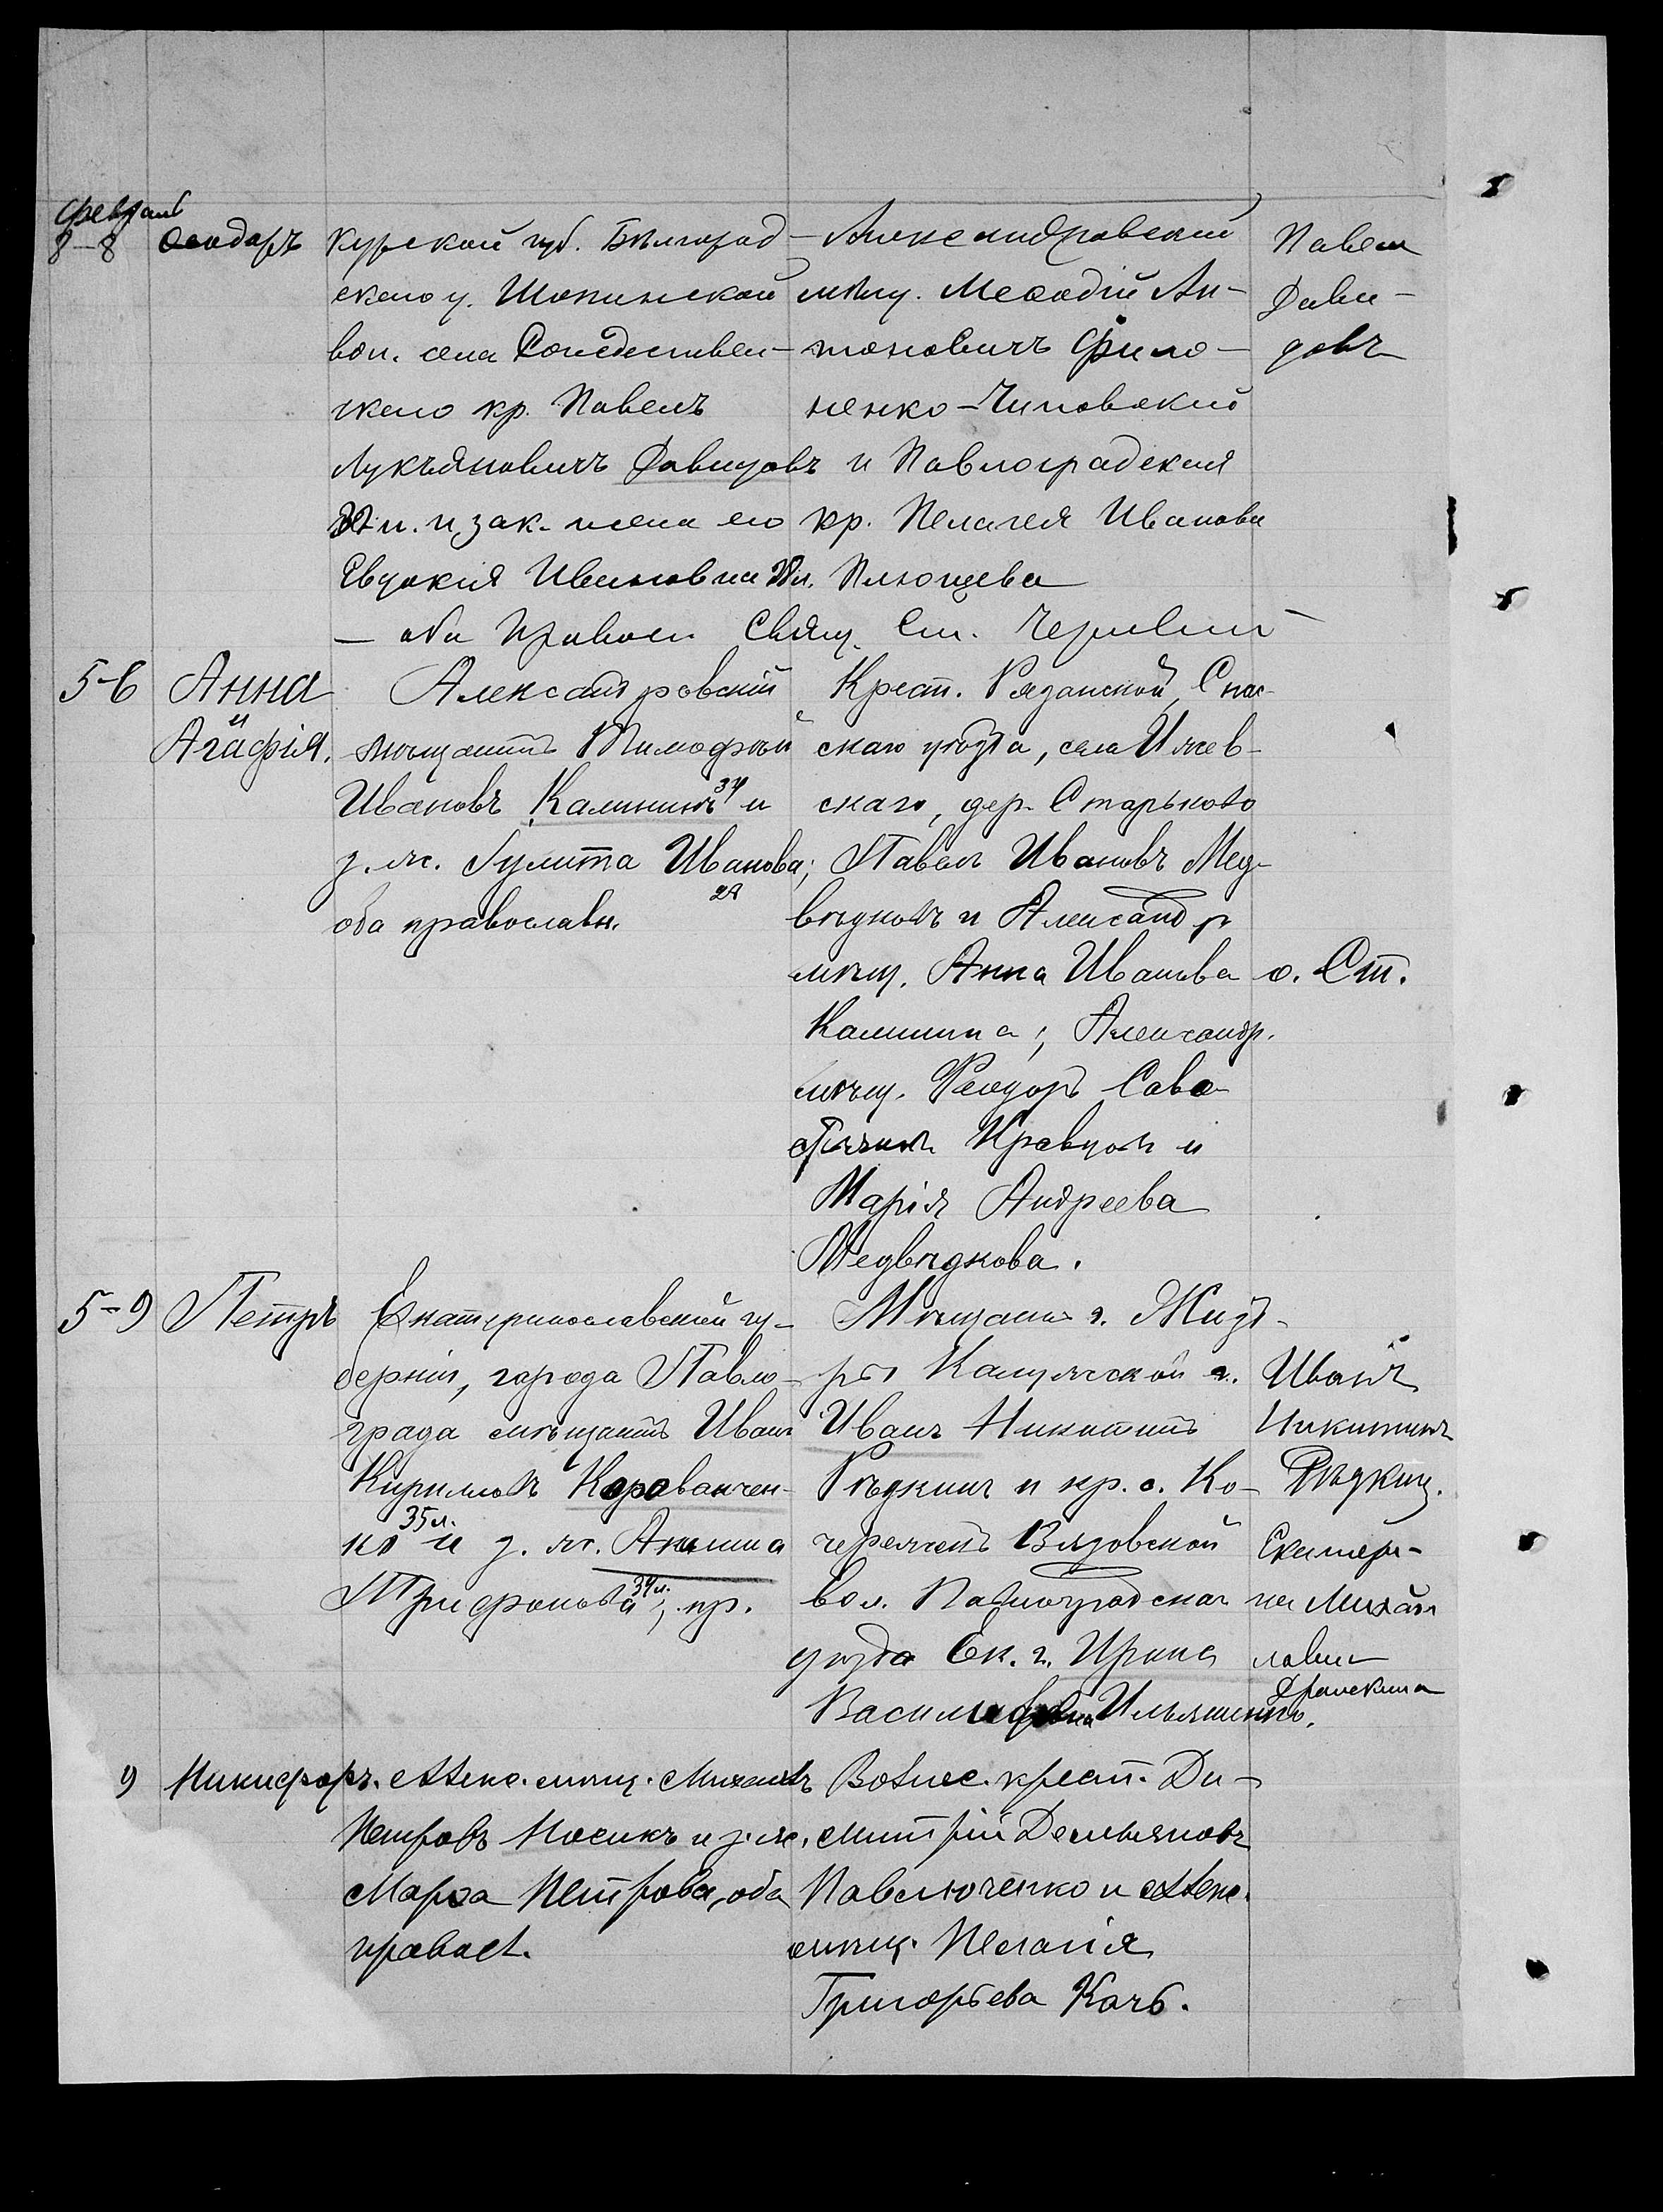 Февраль
8-8 Ѳеодоръ
Курской губ. Бѣлгород-
скаго у. Шопинской
вол. села Рождествен-
скаго кр. Павелъ
Лукьяновичъ Давидовъ
и зак. жена его
Евдокія Ивановна 28 л.
Александровскій
мѣщ. Меѳодій Ан-
тоновичъ Фило-
ненко-Чиповскій
и Павлоградская
кр. Пелагея Иванова
Плющева
Павелъ
Дави-
довъ
— оба Правосл. Свящ. Ст.
5-6 Анна
и
Агафія.
Александровскій
мѣщанинъ Тимофѣй
Ивановъ Калининъ 34 и
з. ж. Іулита Иванова; 29
оба православн.
Крест. Рязанской, Спас-
скаго уѣзда, села Ижев-
скаго, дер. Старьково
Павелъ Ивановъ Мед-
вѣдковъ и Александр.
мѣщ. Анна Иванова
Калинина; Александр.
мѣщ. Ѳеодоръ Сава-
Кравцовъ и
Марія Андреева
Медвѣдкова.
о. Ст.
5-9 Петръ
Екатеринославской гу-
берніи, города Павло-
града мѣщанинъ Иванъ
Кирилловъ Караванчен-
ко 35 л. и з. ж. Акилина
Трифонова 34 л.; пр.
Мѣщанинъ г. Жизд-
ры Калужской г.
Иванъ Никитинъ
Рѣдкинъ и кр. с. Ко-
чережекъ Вязовской
вол. Павлоградскаго
уѣзда Ек. г. Ирина
Васильевна Ильяшенко.
Иванъ
Никитинъ
Рѣдкинъ.
Екатери-
на Михай-
ловна
9 Никифоръ.
Алекс. мѣщ. Михаилъ
Петровъ Носикъ и з. ж.
Марѳа Петрова, оба
правосл.
Вознес. крест. Ди-
митрій Демьяновъ
Павлюченко и Алекс.
мѣщ. Пелагія
Григорьева Качъ.